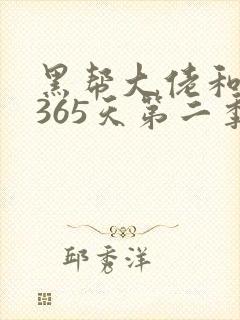 黑帮大佬和
365天第二季
邱秀洋